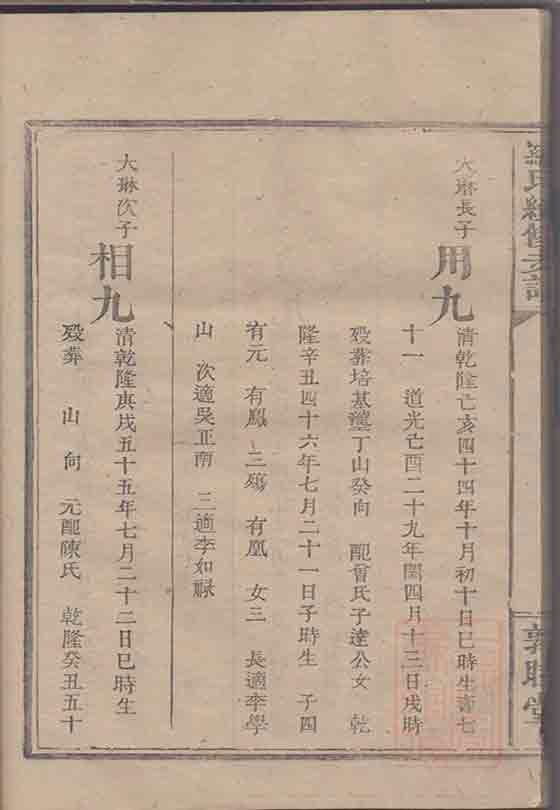 氏續修支譜
敦睦堂
大琳長子
用九
清乾隆己亥四十四年十月初十日巳時生壽七
十一 道光己酉二十九年閏四月十三日戌時
歿葬培基壟丁山癸向 配曾氏子達公女 乾
隆辛丑四十六年七月二十一日子時生 子四
有元 有鳳 三殤 有凰 女三 長適李學
山 次適吳正南 三適李如祿
大琳次子
相九
清乾隆庚戌五十五年七月二十二日巳時生
歿葬 山 向 元配陳氏 乾隆癸丑五十